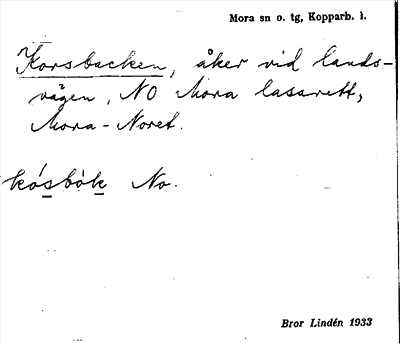 Mora sn o. tg, Kopparb. l.
Korsbacken, åker vid lands-
vägen, NO Mora lasarett,
Mora-Noret.
kósbók No.
Bror Lindén 1933